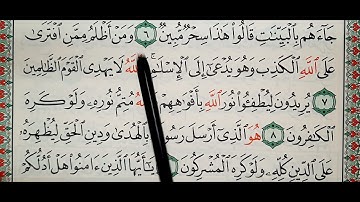 جَآءَهُم بِٱلْبَيِّنَٰتِ قَالُوا۟ هَٰذَا سِحْرٌ مُّبِينٌ ٦ وَمَنْ أَظْلَمُ مِمَّنِ ٱفْتَرَىٰ
عَلَى ٱللَّهِ ٱلْكَذِبَ وَهُوَ يُدْعَىٰٓ إِلَى ٱلْإِسْلَٰمِ لَا يَهْدِى ٱلْقَوْمَ ٱلظَّٰلِمِينَ
٧ يُرِيدُونَ لِيُطْفِـُٔوا۟ نُورَ ٱللَّهِ بِأَفْوَٰهِهِمْ مُتِمُّ نُورِهِۦ وَلَوْ كَرِهَ
ٱلْكَٰفِرُونَ ٨ هُوَ ٱلَّذِىٓ أَرْسَلَ بِٱلْهُدَىٰ وَدِينِ ٱلْحَقِّ لِيُظْهِرَهُۥ
عَلَى ٱلدِّينِ كُلِّهِۦ وَلَوْ كَرِهَ ٱلْمُشْرِكُونَ يَٰٓأَيُّهَا ٱلَّذِينَ ءَامَنُوا۟ هَلْ أَدُلُّكُمْ